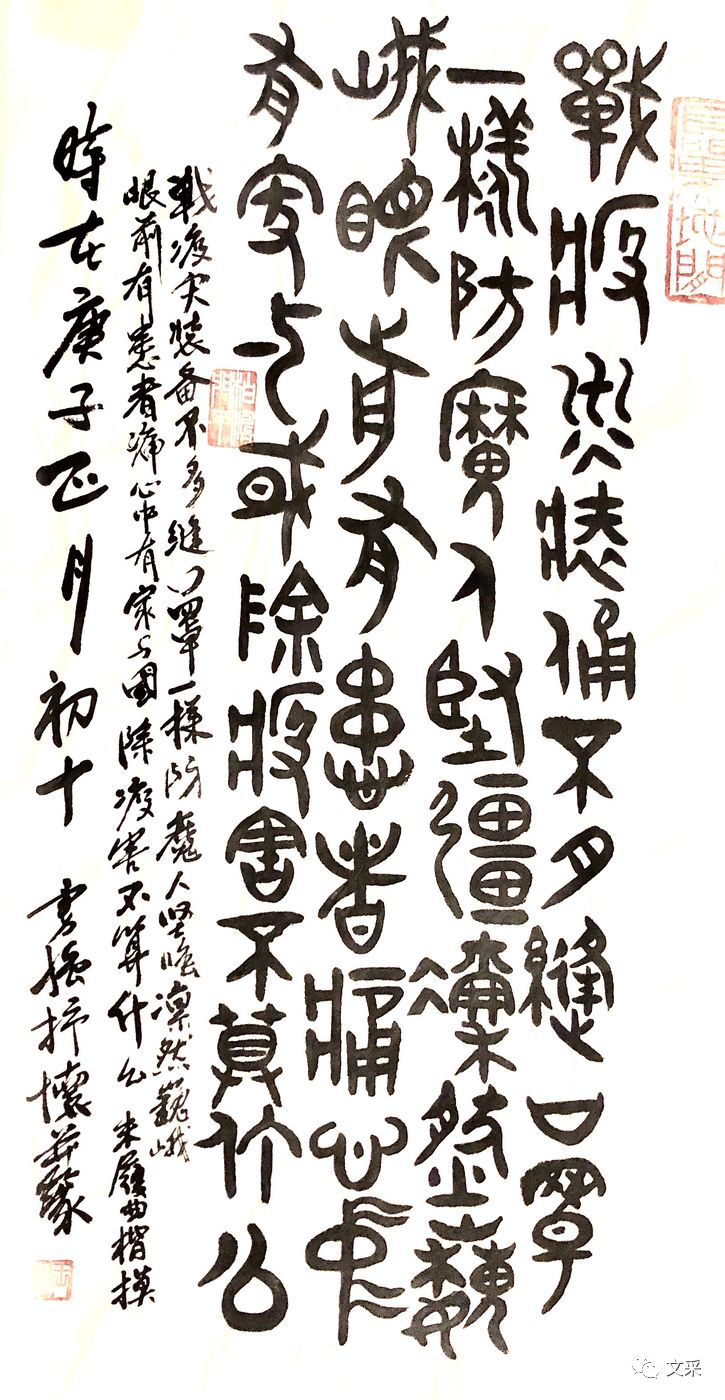 戰疫灾裝備不多縫口罩
一樣防魔人堅彊凜然巍
峨眼前有患者痛心中
有家与或除疫害不算什么
戰疫灾装备不多缝口罩一樣防魔人坚强凛然巍峨
眼前有患者痛心中有家与國除疫害不算什么 朱履曲楷模
時在庚子正月初十 書 抒懷
文采